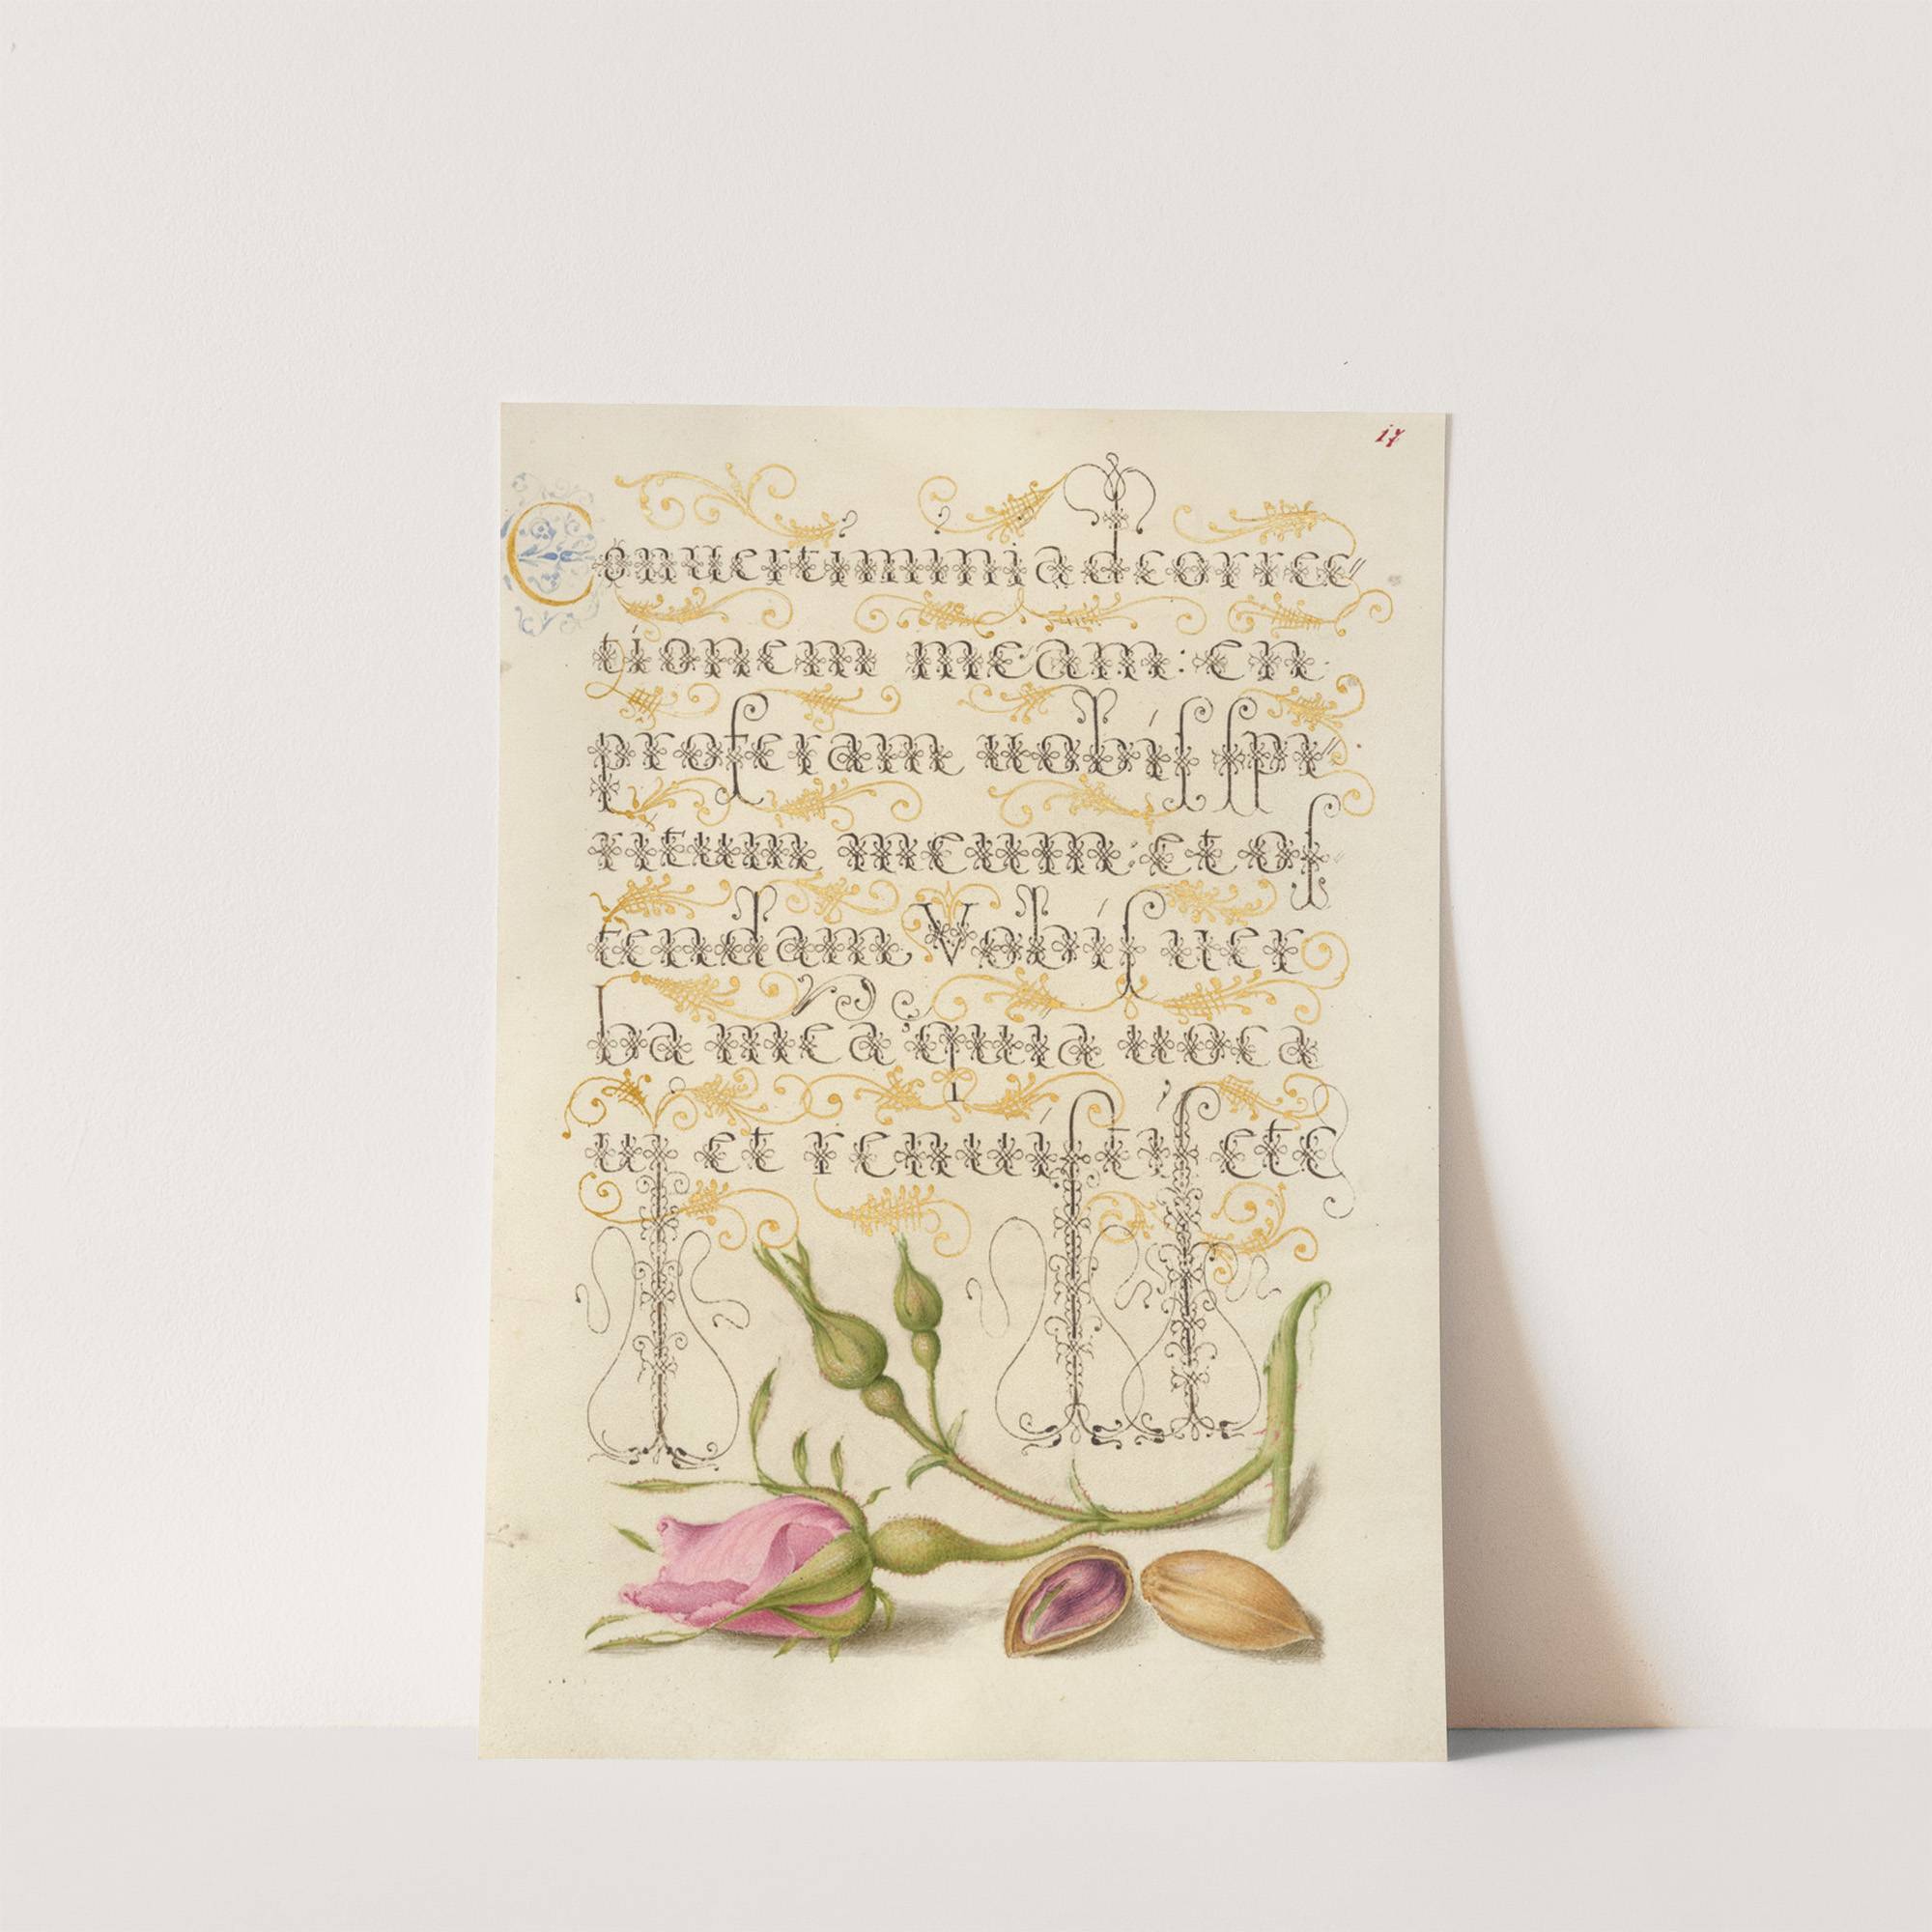 17
Conuertimini ad correc//
tionem meam: en
proferam uobiſ ſpi//
ritum meum: et oſ//
tendam Vobiſ uer
ba mea quia uoca
ui et renuiſtiſ etc